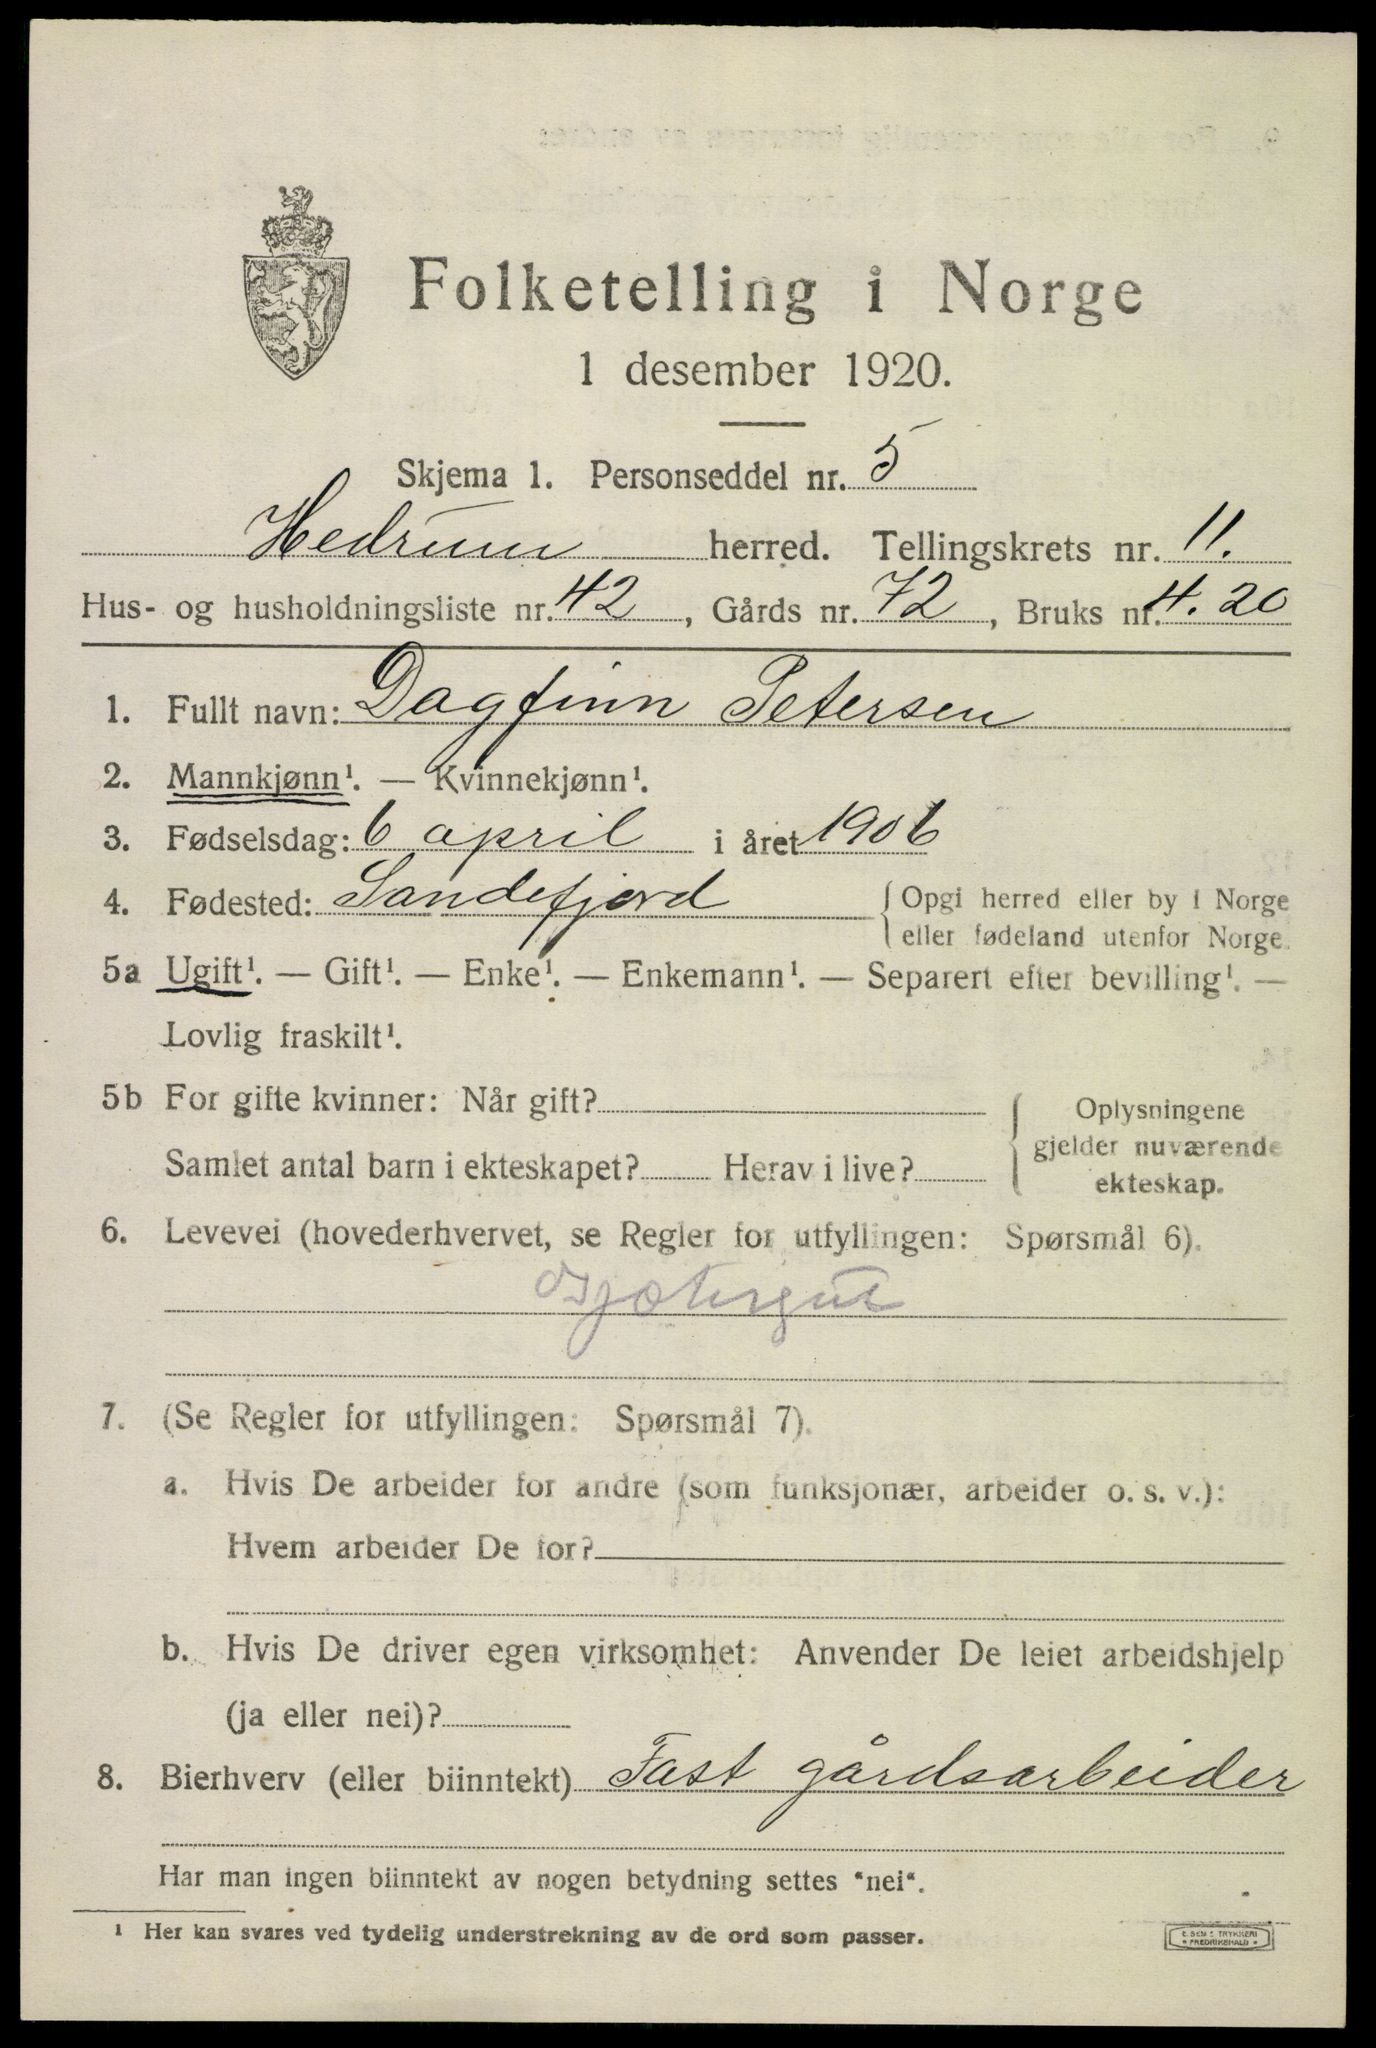 Folketelling i Norge
1 desember 1920.
Skjema 1. Personseddel nr. 5
Hedrum herred. Tellingskrets nr. 11.
Hus- og husholdningsliste nr. 42, Gårds nr. 72, Bruks nr. 4.20
1. Fullt navn: Dagfinn Petersen
2. Mannkjønn¹. — Kvinnekjønn¹.
3. Fødselsdag: 6 april i året 1906
4. Fødested: Sandefjord { Opgi herred eller by i Norge
eller fødeland utenfor Norge.
5a Ugift¹. — Gift¹. — Enke¹. — Enkemann¹. — Separert efter bevilling¹. —
Lovlig fraskilt¹.
5b For gifte kvinner: Når gift?
Samlet antal barn i ekteskapet? Herav i live?
{ Oplysningene
gjelder nuværende
ekteskap.
6. Levevei (hovederhvervet, se Regler for utfyllingen: Spørsmål 6).
Gjætergut
7. (Se Regler for utfyllingen: Spørsmål 7).
a. Hvis De arbeider for andre (som funksjonær, arbeider o. s. v.):
Hvem arbeider De for?
b. Hvis De driver egen virksomhet: Anvender De leiet arbeidshjelp
(ja eller nei)?
8. Bierhverv (eller biinntekt) Fast gårdsarbeider
Har man ingen biinntekt av nogen betydning settes "nei".
¹ Her kan svares ved tydelig understrekning av de ord som passer.
TRYKKERI
FREDRIKSHALD